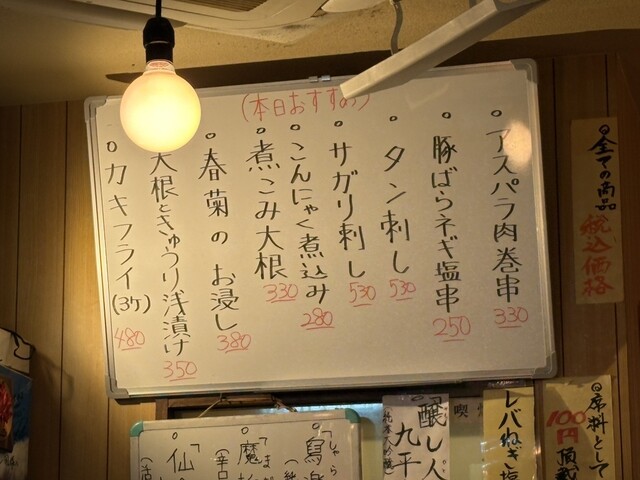 (本日おすすめ)
アスパラ肉巻串 330
豚ばらネギ塩串 250
タン刺し 530
サガリ刺し 530
こんにゃく煮込み 280
煮こみ大根 330
春菊のお浸し 380
大根ときゅうり浅漬け 350
カキフライ(3ケ) 480
全ての商品
税込価格
席料として
100円頂戴
レバねぎ塩
喫
醸し人
九平